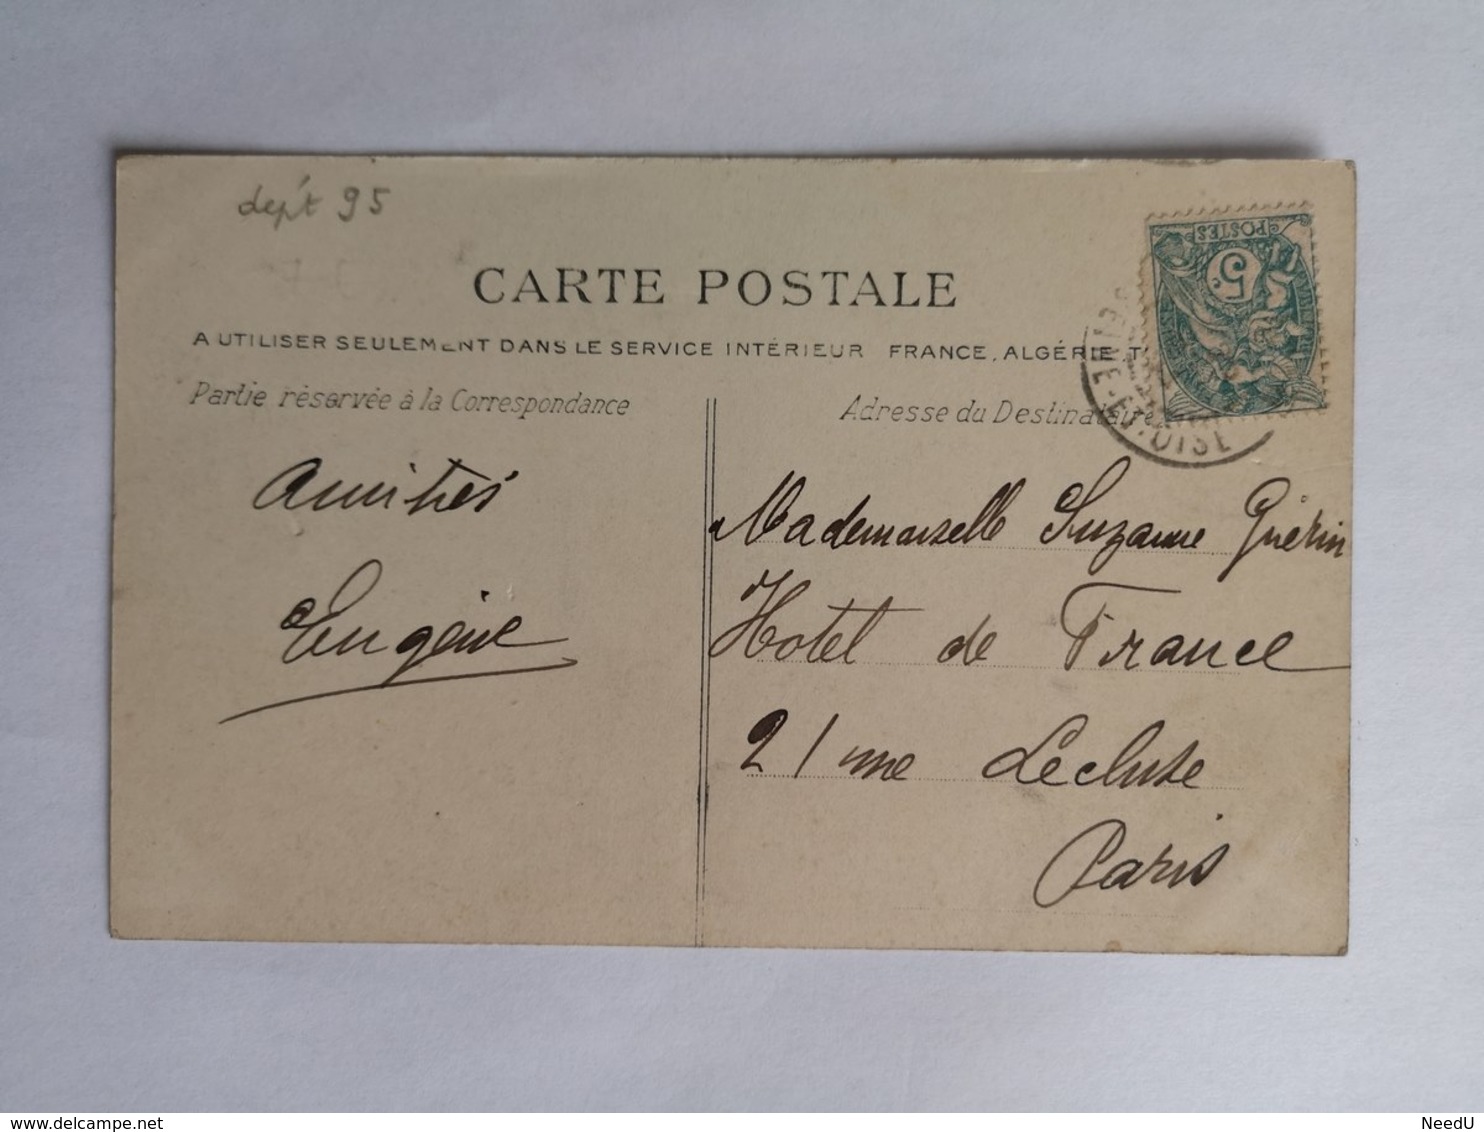 dep't 95
CARTE POSTALE
A UTILISER SEULEMENT DANS LE SERVICE INTÉRIEUR FRANCE, ALGÉRIE, T
Partie réservée à la Correspondance
Adresse du Destinataire
POSTES
5
NE-ET-OISE
Amitiés
Eugénie
Mademoiselle Suzanne Guérin
Hotel de France
21 rue Lécluse
Paris
delcampe.net
NeedU